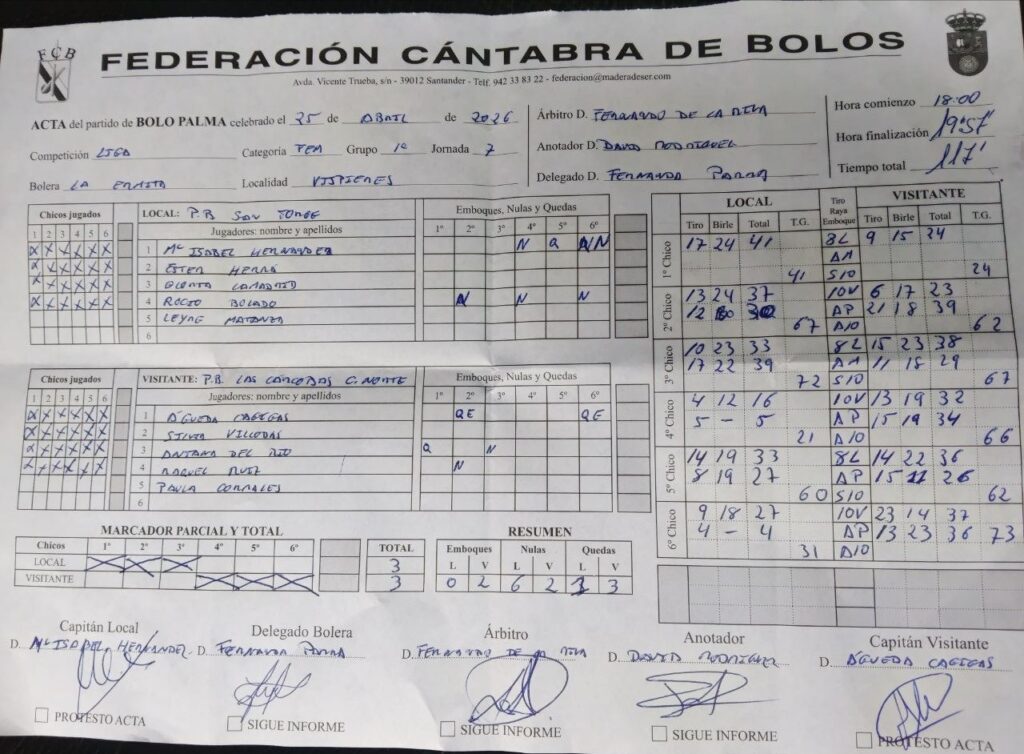 FCB
FEDERACIÓN CÁNTABRA DE BOLOS
Avda. Vicente Trueba, s/n - 39012 Santander - Telf. 942 33 83 22 - federacion@maderadeser.com
ACTA del partido de BOLO PALMA celebrado el 25 de ABRIL de 2026
Competición LIGA Categoría FEM Grupo 1ª Jornada 7
Bolera LA ERMITA Localidad VISPIERES
Árbitro D. FERNANDO DE LA RIVA
Anotador D. DAVID RODRIGUEZ
Delegado D. FERNANDA PARRA
Hora comienzo 18:00
Hora finalización 19:57
Tiempo total 117'
Chicos jugados LOCAL: P.B SAN JORGE Emboques, Nulas y Quedas
1 2 3 4 5 6 Jugadores: nombre y apellidos 1º 2º 3º 4º 5º 6º
X X X X X X 1 Mª ISABEL HERNANDEZ N Q N
X X X X X X 2 ESTER HERRÁ
X X X X X X 3 GLORIA LAMADRID
X X X X X X 4 ROCIO BOLADO N N N
5 LEYRE MATANZA
6
Chicos jugados VISITANTE: P.B. LAS CÁRCOBAS C. NORTE Emboques, Nulas y Quedas
1 2 3 4 5 6 Jugadores: nombre y apellidos 1º 2º 3º 4º 5º 6º
X X X X X X 1 ÁGUEDA CAGIGAS QE QE
X X X X X X 2 SILVIA VILLODAS
X X X X X X 3 ANTONIA DEL RIO Q N
X X X X X X 4 RAQUEL RUIZ N
5 PAULA CORRALES
6
MARCADOR PARCIAL Y TOTAL
Chicos 1º 2º 3º 4º 5º 6º TOTAL
LOCAL X X X 3
VISITANTE X X X 3
RESUMEN
Emboques Nulas Quedas
L V L V L V
0 2 6 2 1 3
LOCAL Tiro Raya Emboque VISITANTE
Tiro Birle Total T.G. Tiro Birle Total T.G.
1º Chico
17 24 41 8L 9 15 24
AM
41 S10 24
2º Chico
13 24 37 10V 6 17 23
12 30 AP 21 18 39
67 A10 62
3º Chico
10 23 33 8L 15 23 38
17 22 39 AM 11 18 29
72 S10 67
4º Chico
4 12 16 10V 13 19 32
5 - 5 AP 15 19 34
21 A10 66
5º Chico
14 19 33 8L 14 22 36
8 19 27 AP 15 11 26
60 S10 62
6º Chico
9 18 27 10V 23 14 37
4 - 4 AP 13 23 36 73
31 A10
Capitán Local
D. Mª ISABEL HERNANDEZ
PROTESTO ACTA
Delegado Bolera
D. FERNANDA PARRA
SIGUE INFORME
Árbitro
D. FERNANDO DE LA RIVA
SIGUE INFORME
Anotador
D. DAVID RODRIGUEZ
SIGUE INFORME
Capitán Visitante
D. ÁGUEDA CAGIGAS
PROTESTO ACTA